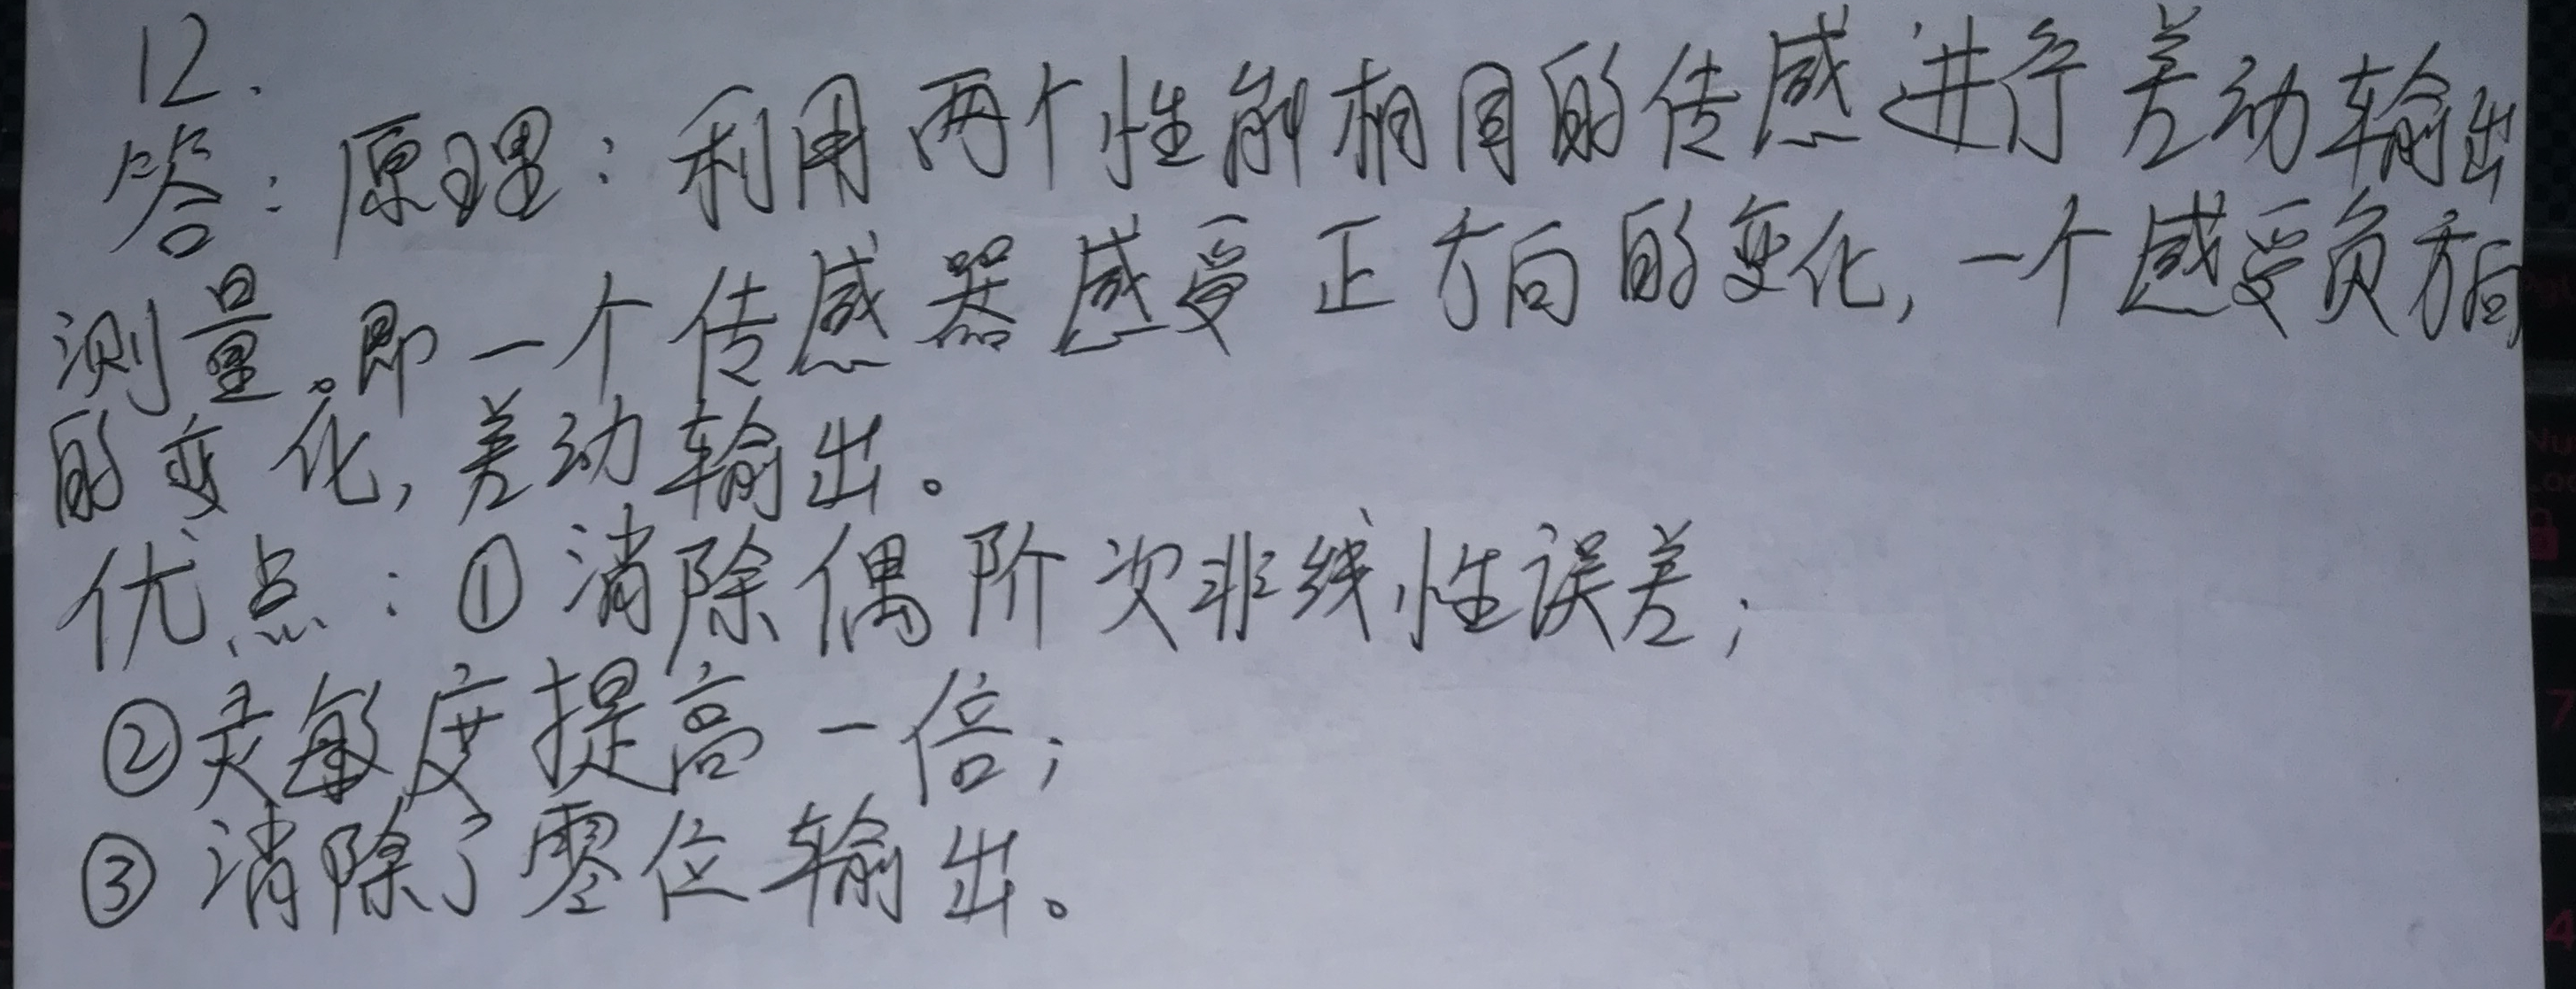 12.
答：原理：利用两个性能相同的传感进行差动输出
测量。即一个传感器感受正方向的变化,一个感受负方向
的变化,差动输出。
优点：①消除偶阶次非线性误差;
②灵敏度提高一倍;
③消除了零位输出。